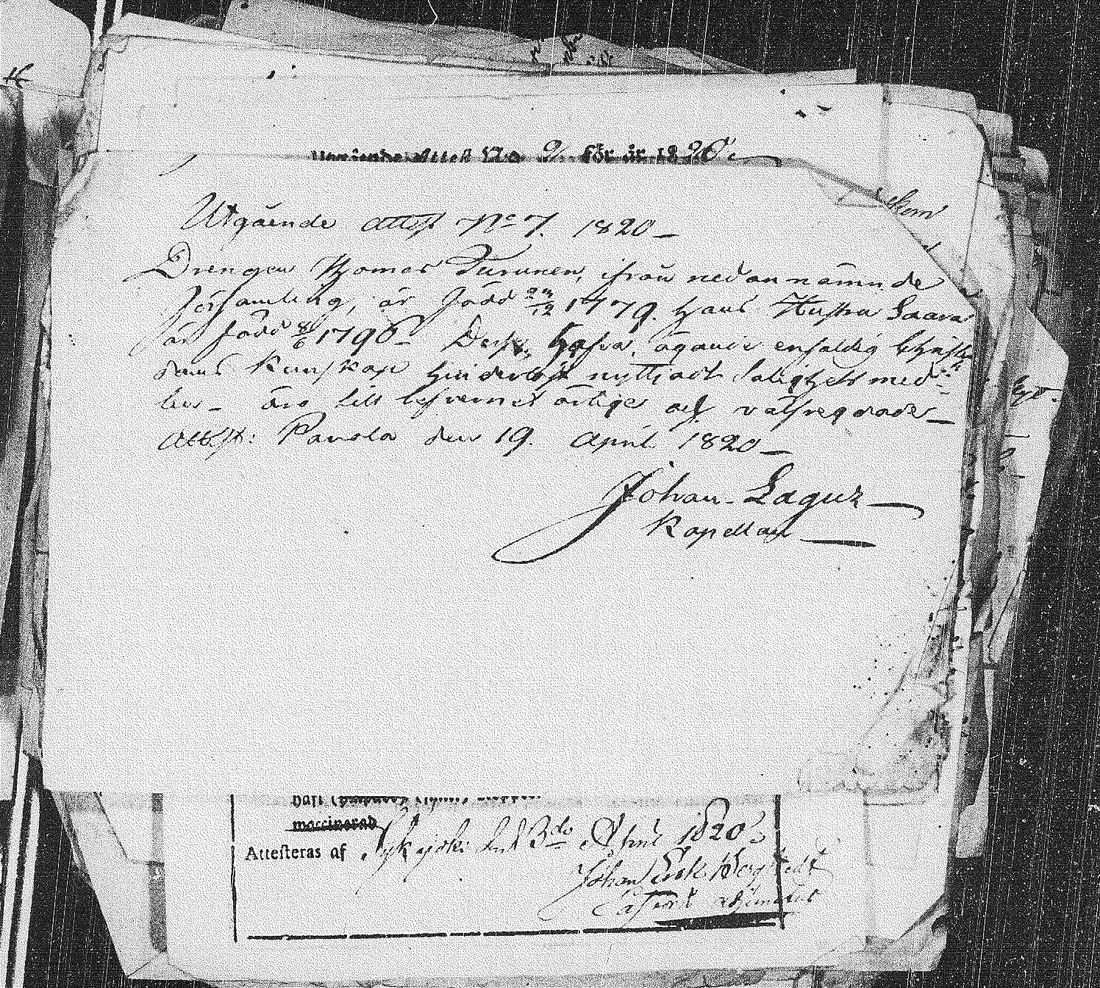 Utgående Attest No för år 1820.
Utgående Attest No 7. 1820 –
Drengen Thomas Turunen, ifrån nedannämnde
församling, är född 1779. Hans Hustru Saara
är född 8/6 1796 – Desse, hafva, ägande enfaldig Christen
doms Kunskap hinderlöst nyttjadt Salighets med-
len – äro till lefvernet ärlige och välfregdade –
Attest: Pavola den 19. April 1820 –
Johan Lagus
Kapellan
vaccinerad
Attesteras af den 3dje April 1820
Johan Erik